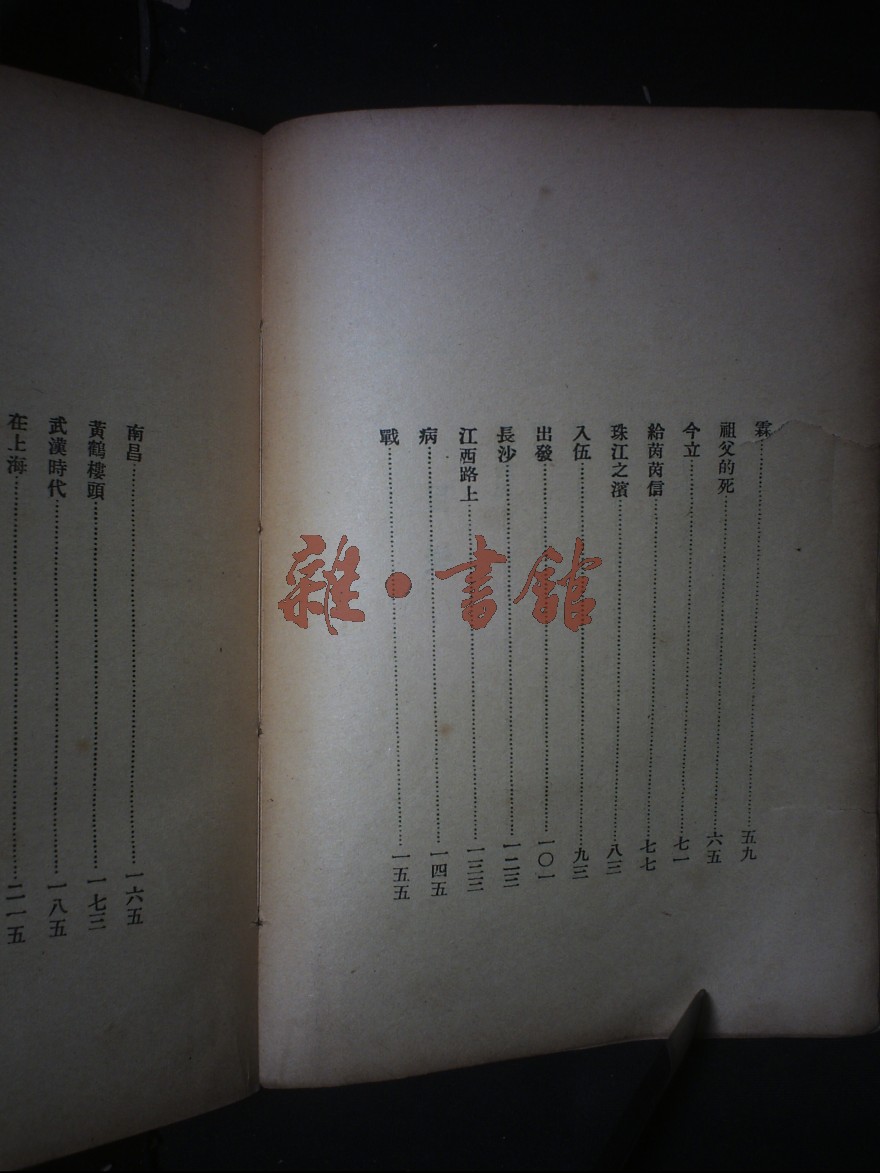 霖……五九
祖父的死……六五
今立……七一
給茵茵信……七七
珠江之濱……八三
入伍……九三
出發……一〇一
長沙……一二三
江西路上……一三三
病……一四五
戰……一五五
南昌……一六五
黃鶴樓頭……一七三
武漢時代……一八五
在上海……二一五
雜·書館